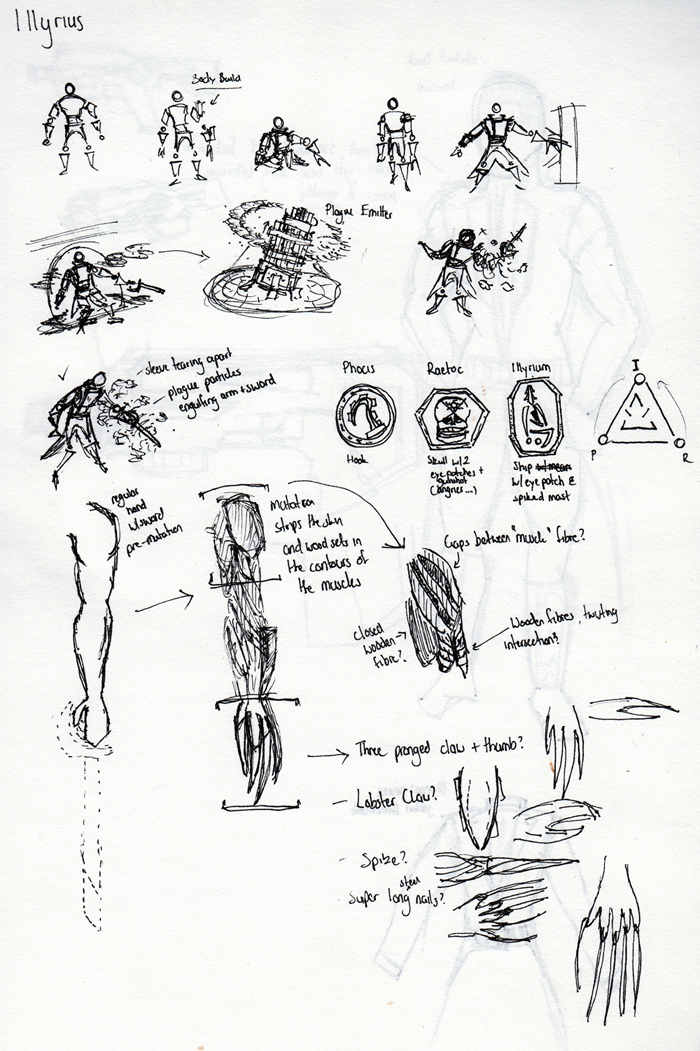 Illyrius
Body Build
Plague Emitter
x
sleeve tearing apart
plague particles
engulfing arm + sword
Phocis
Hook
Raetoc
Skull w/ 2
eye patches +
(angrier...)
Illyrium
Ship
w/ eye patch &
spiked mast
I
P
R
regular
hand
w/sword
pre-mutation
mutation
strips the skin
and wood sets in
the contours of
the muscles
Gaps between "muscle" fibre?
Closed
wooden
fibre?
Wooden fibres, twisting
intersections?
Three pronged claw + thumb?
- Lobster Claw?
- Spike?
steel
- Super long nails?